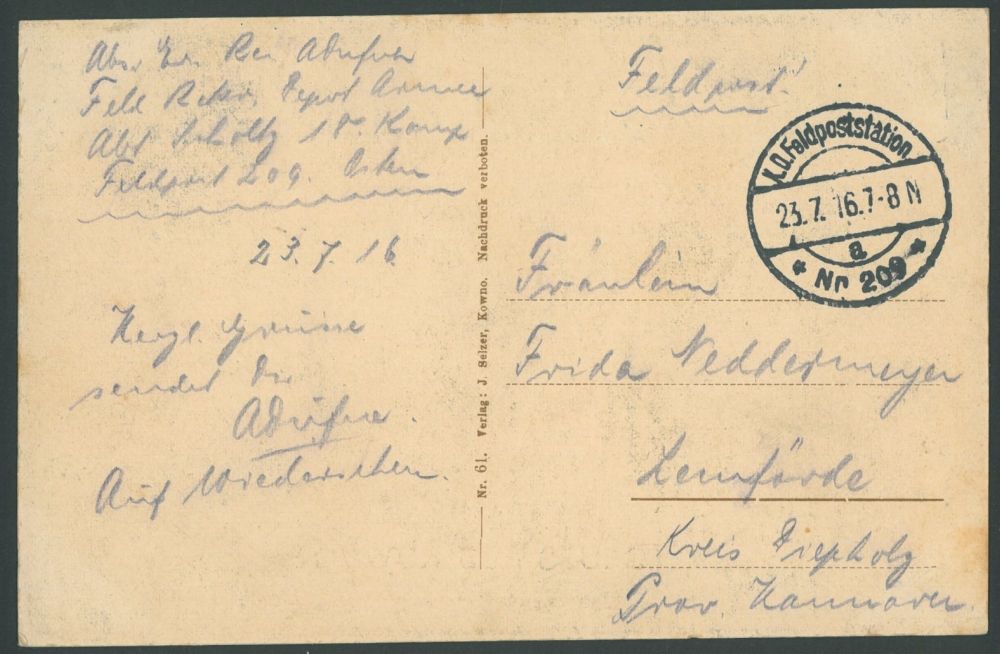 Abs.
Feld Rekr. Depot Armee
Abt. Scholtz 1. Komp
Feldpost 209. Osten
23.7.16
Herzl. Grüsse
sendet Dir
Auf Wiedersehen.
Nr. 61. Verlag: J. Selzer, Kowno. Nachdruck verboten.
Feldpost!
K.D. Feldpoststation
23.7.16.7-8 N
a
* Nr 209 *
Fräulein
Frida Neddermeyer
Lemförde
Kreis Diepholz
Prov. Hannover.